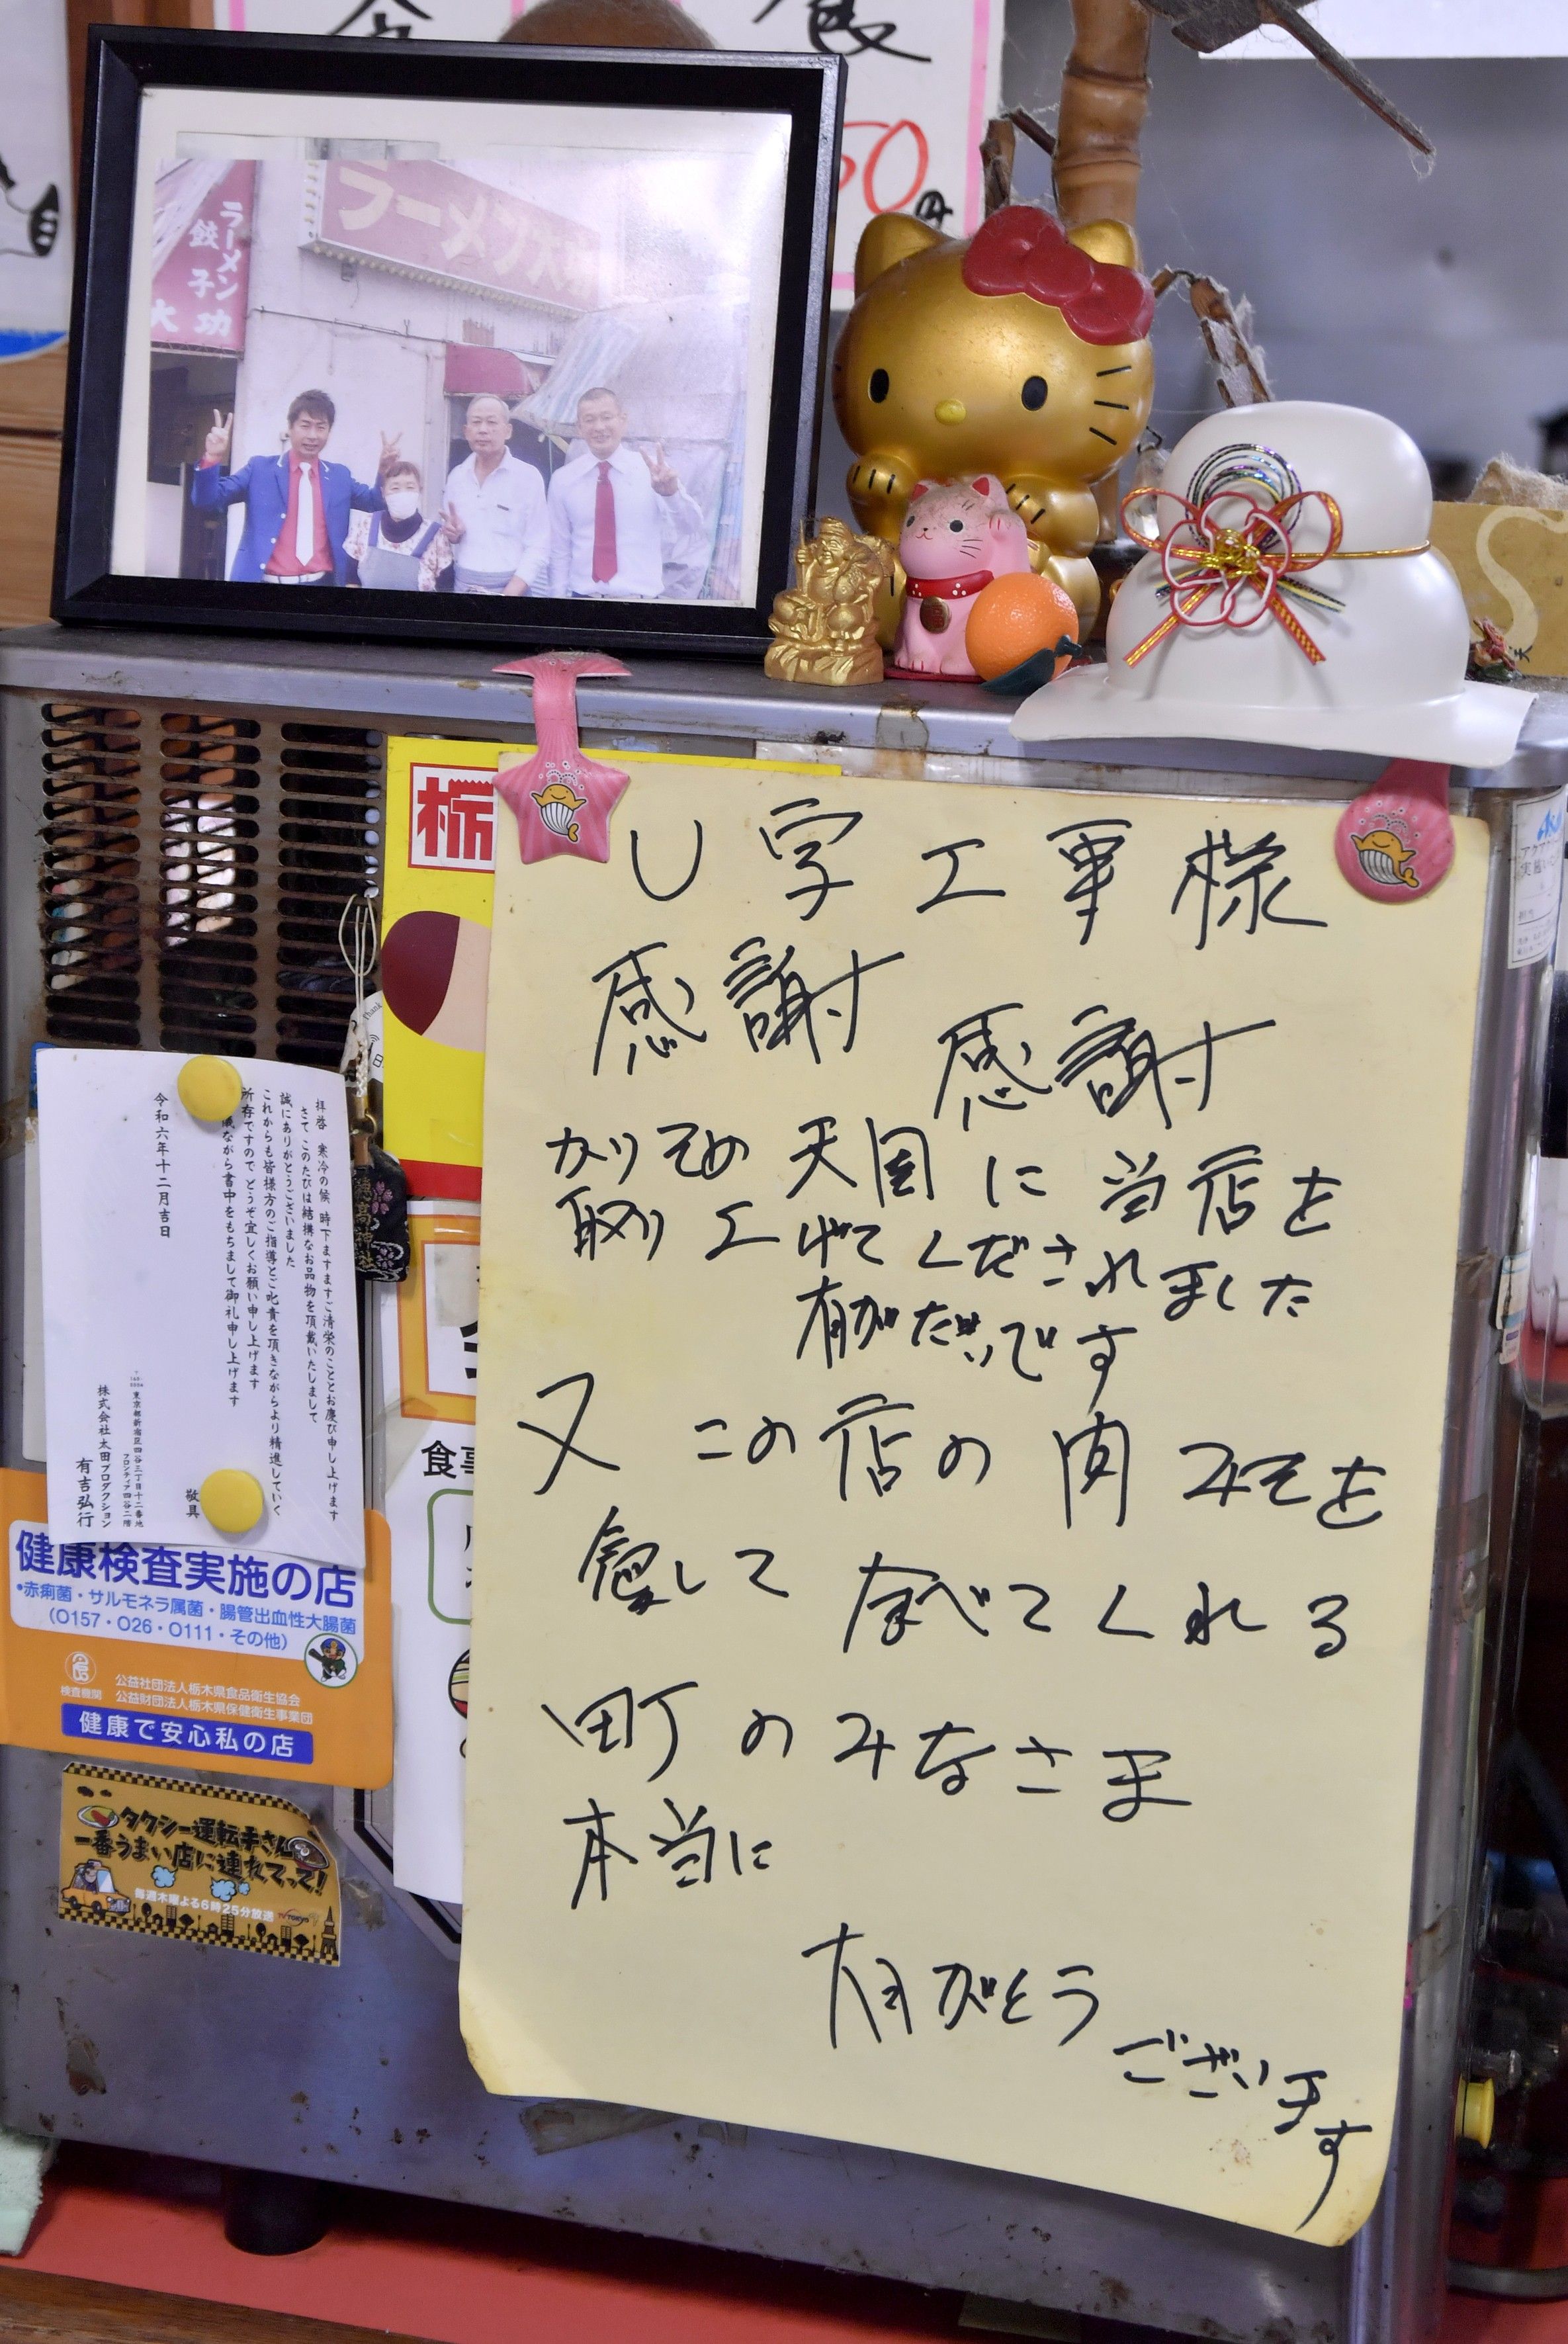 食
50円
ラーメン
餃子
大功
ラーメン大
栃
U字工事様
感謝
感謝
かりそめ天国に当店を
取り上げてくだされました
有がたいです
又この店の肉みそを
愛して食べてくれる
町のみなさま
本当に
有がとう
ございます
拝啓 寒冷の候 時下ますますご清栄のこととお慶び申し上げます
さて このたびは結構なお品物を頂戴いたしまして
誠にありがとうございました
これからも皆様方のご指導とご叱責を頂きながらより精進していく
所存ですので どうぞ宜しくお願い申し上げます
ながら書中をもちまして御礼申し上げます
敬具
令和六年十二月吉日
東京都新宿区四谷三丁目十二番地
フロンティア四谷二階
株式会社太田プロダクション
有吉弘行
穂高神社
食事
健康検査実施の店
•赤痢菌・サルモネラ属菌・腸管出血性大腸菌
(O157・O26・O111・その他)
検査機関
公益社団法人栃木県食品衛生協会
公益財団法人栃木県保健衛生事業団
健康で安心私の店
タクシー運転手さん
一番うまい店に連れてって!
毎週木曜よる6時25分放送